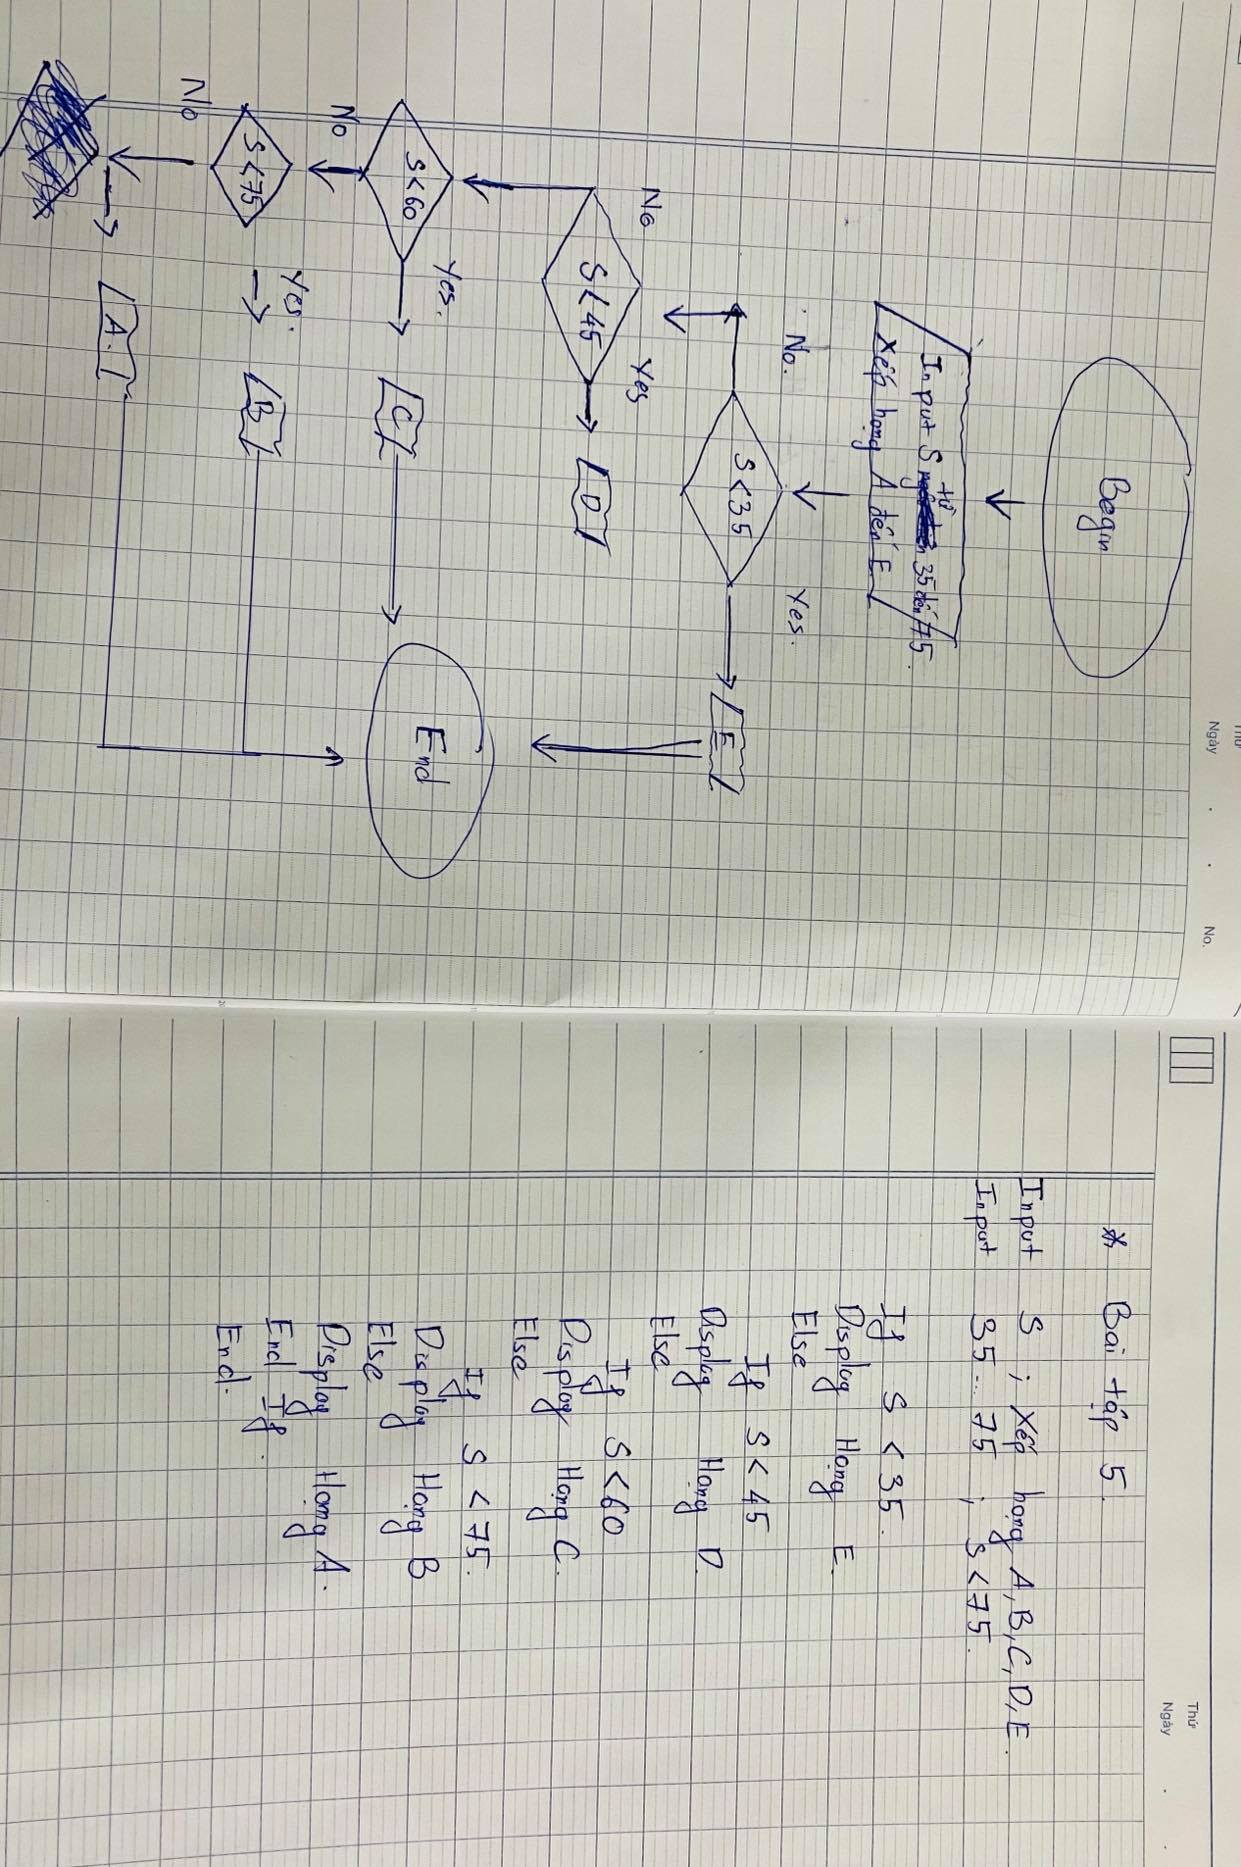 Thứ
Ngày
No.
Begin
Input S từ 35 đến 75.
Xếp hạng A đến E
S < 35
No.
Yes.
E
S < 45
No
Yes
D
S < 60
No
Yes.
C
S < 75
No
Yes.
B
A.
End
Thứ
Ngày
* Bài tập 5.
Input S ; Xếp hạng A, B, C, D, E.
Input 35... 75 ; S < 75.
If S < 35.
Display Hạng E.
Else
If S < 45
Display Hạng D.
Else
If S < 60
Display Hạng C.
Else
If S < 75.
Display Hạng B
Else
Display Hạng A.
End If.
End.